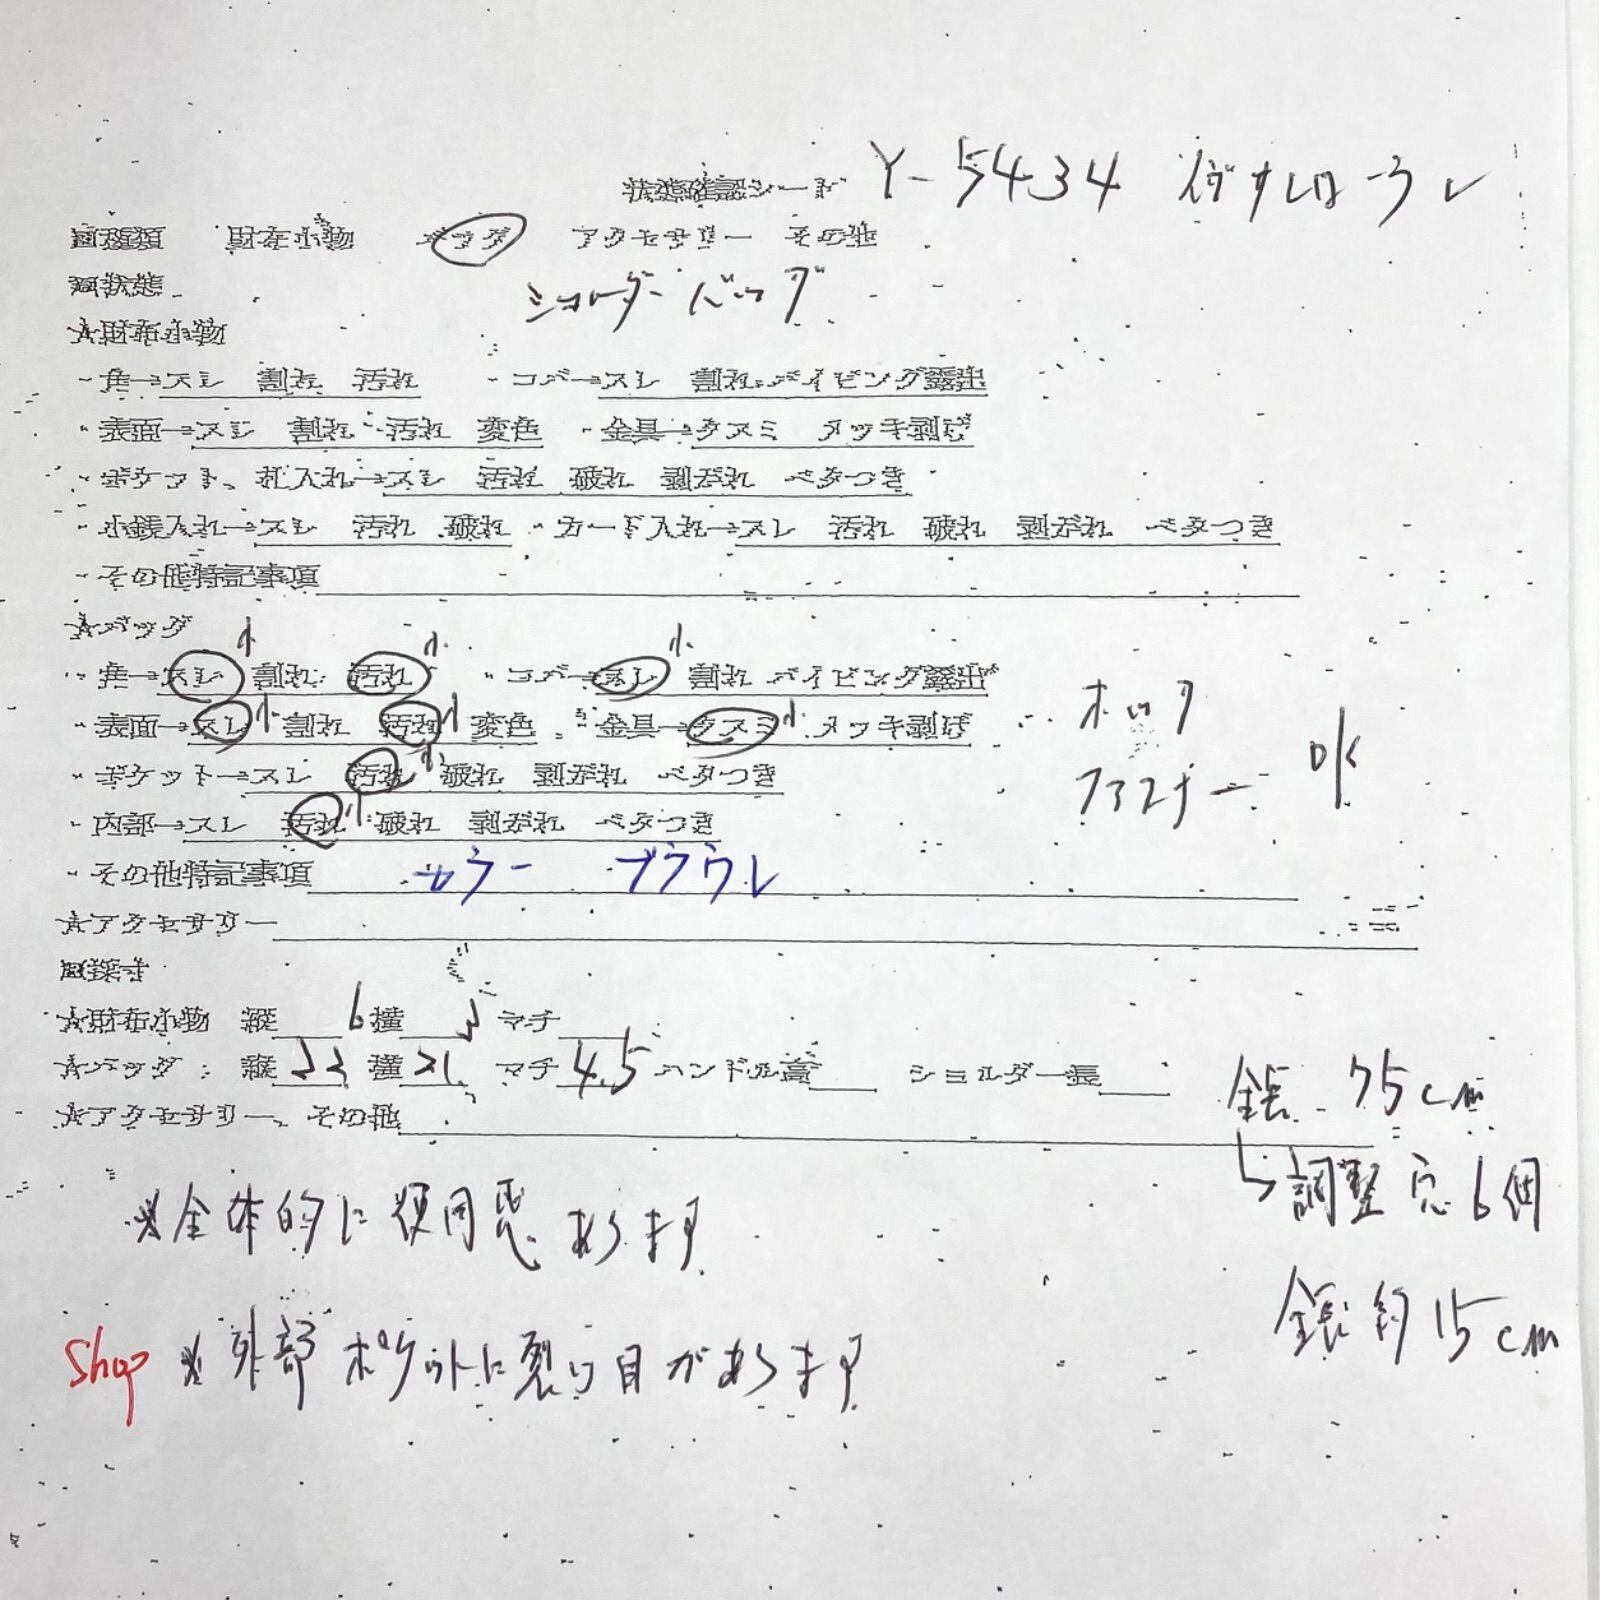 状態確認シート Y-5434 イヴサンローラン
□種類 財布小物 バッグ アクセサリー その他
□状態 ショルダーバッグ
☆財布小物
・角→スレ 割れ 汚れ ・コバ→スレ 割れ パイピング露出
・表面→スレ 割れ 汚れ 変色 ・金具→クスミ メッキ剥げ
・ポケット、札入れ→スレ 汚れ 破れ 剥がれ ベタつき
・小銭入れ→スレ 汚れ 破れ ・カード入れ→スレ 汚れ 破れ 剥がれ ベタつき
・その他特記事項
☆バッグ
・角→スレ小 割れ 汚れ小 ・コバ→スレ小 割れ パイピング露出
・表面→スレ小 割れ 汚れ小 変色 ・金具→クスミ小 メッキ剥げ
ホック
ファスナー OK
・ポケット→スレ 汚れ小 破れ 剥がれ ベタつき
・内部→スレ 汚れ小 破れ 剥がれ ベタつき
・その他特記事項 カラー ブラウン
☆アクセサリー
□採寸
☆財布小物 縦 6 横 マチ
☆バッグ: 縦 22 横 21 マチ 4.5 ハンドル高 ショルダー長
全長 75cm
☆アクセサリー、その他
↳調整穴6個
※全体的に使用感あります
全長約15cm
Shop ※外部ポケットに裂け目があります